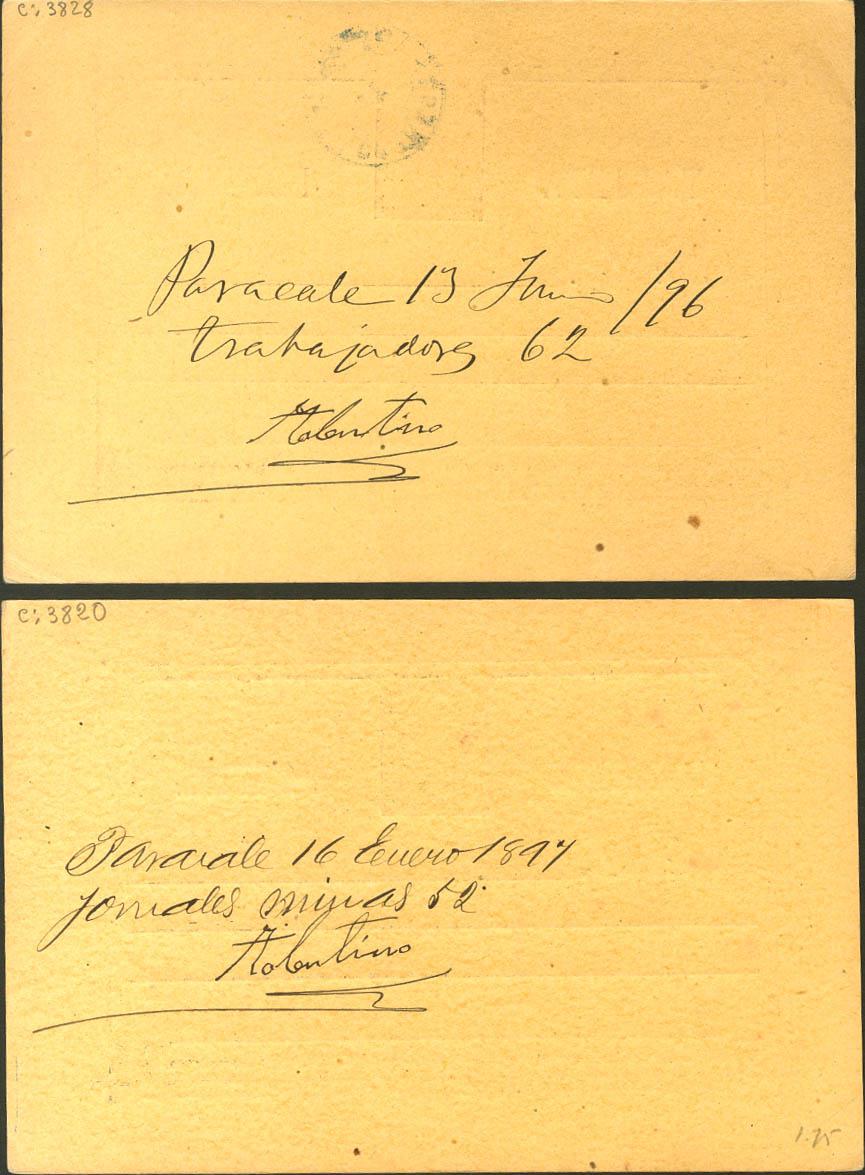 c:, 3828
Paracale 13 Junio /96
trabajadores 62
Tolentino
c:, 3820
Paracale 16 Enero 1897
jornales minas 52
Tolentino
1.75